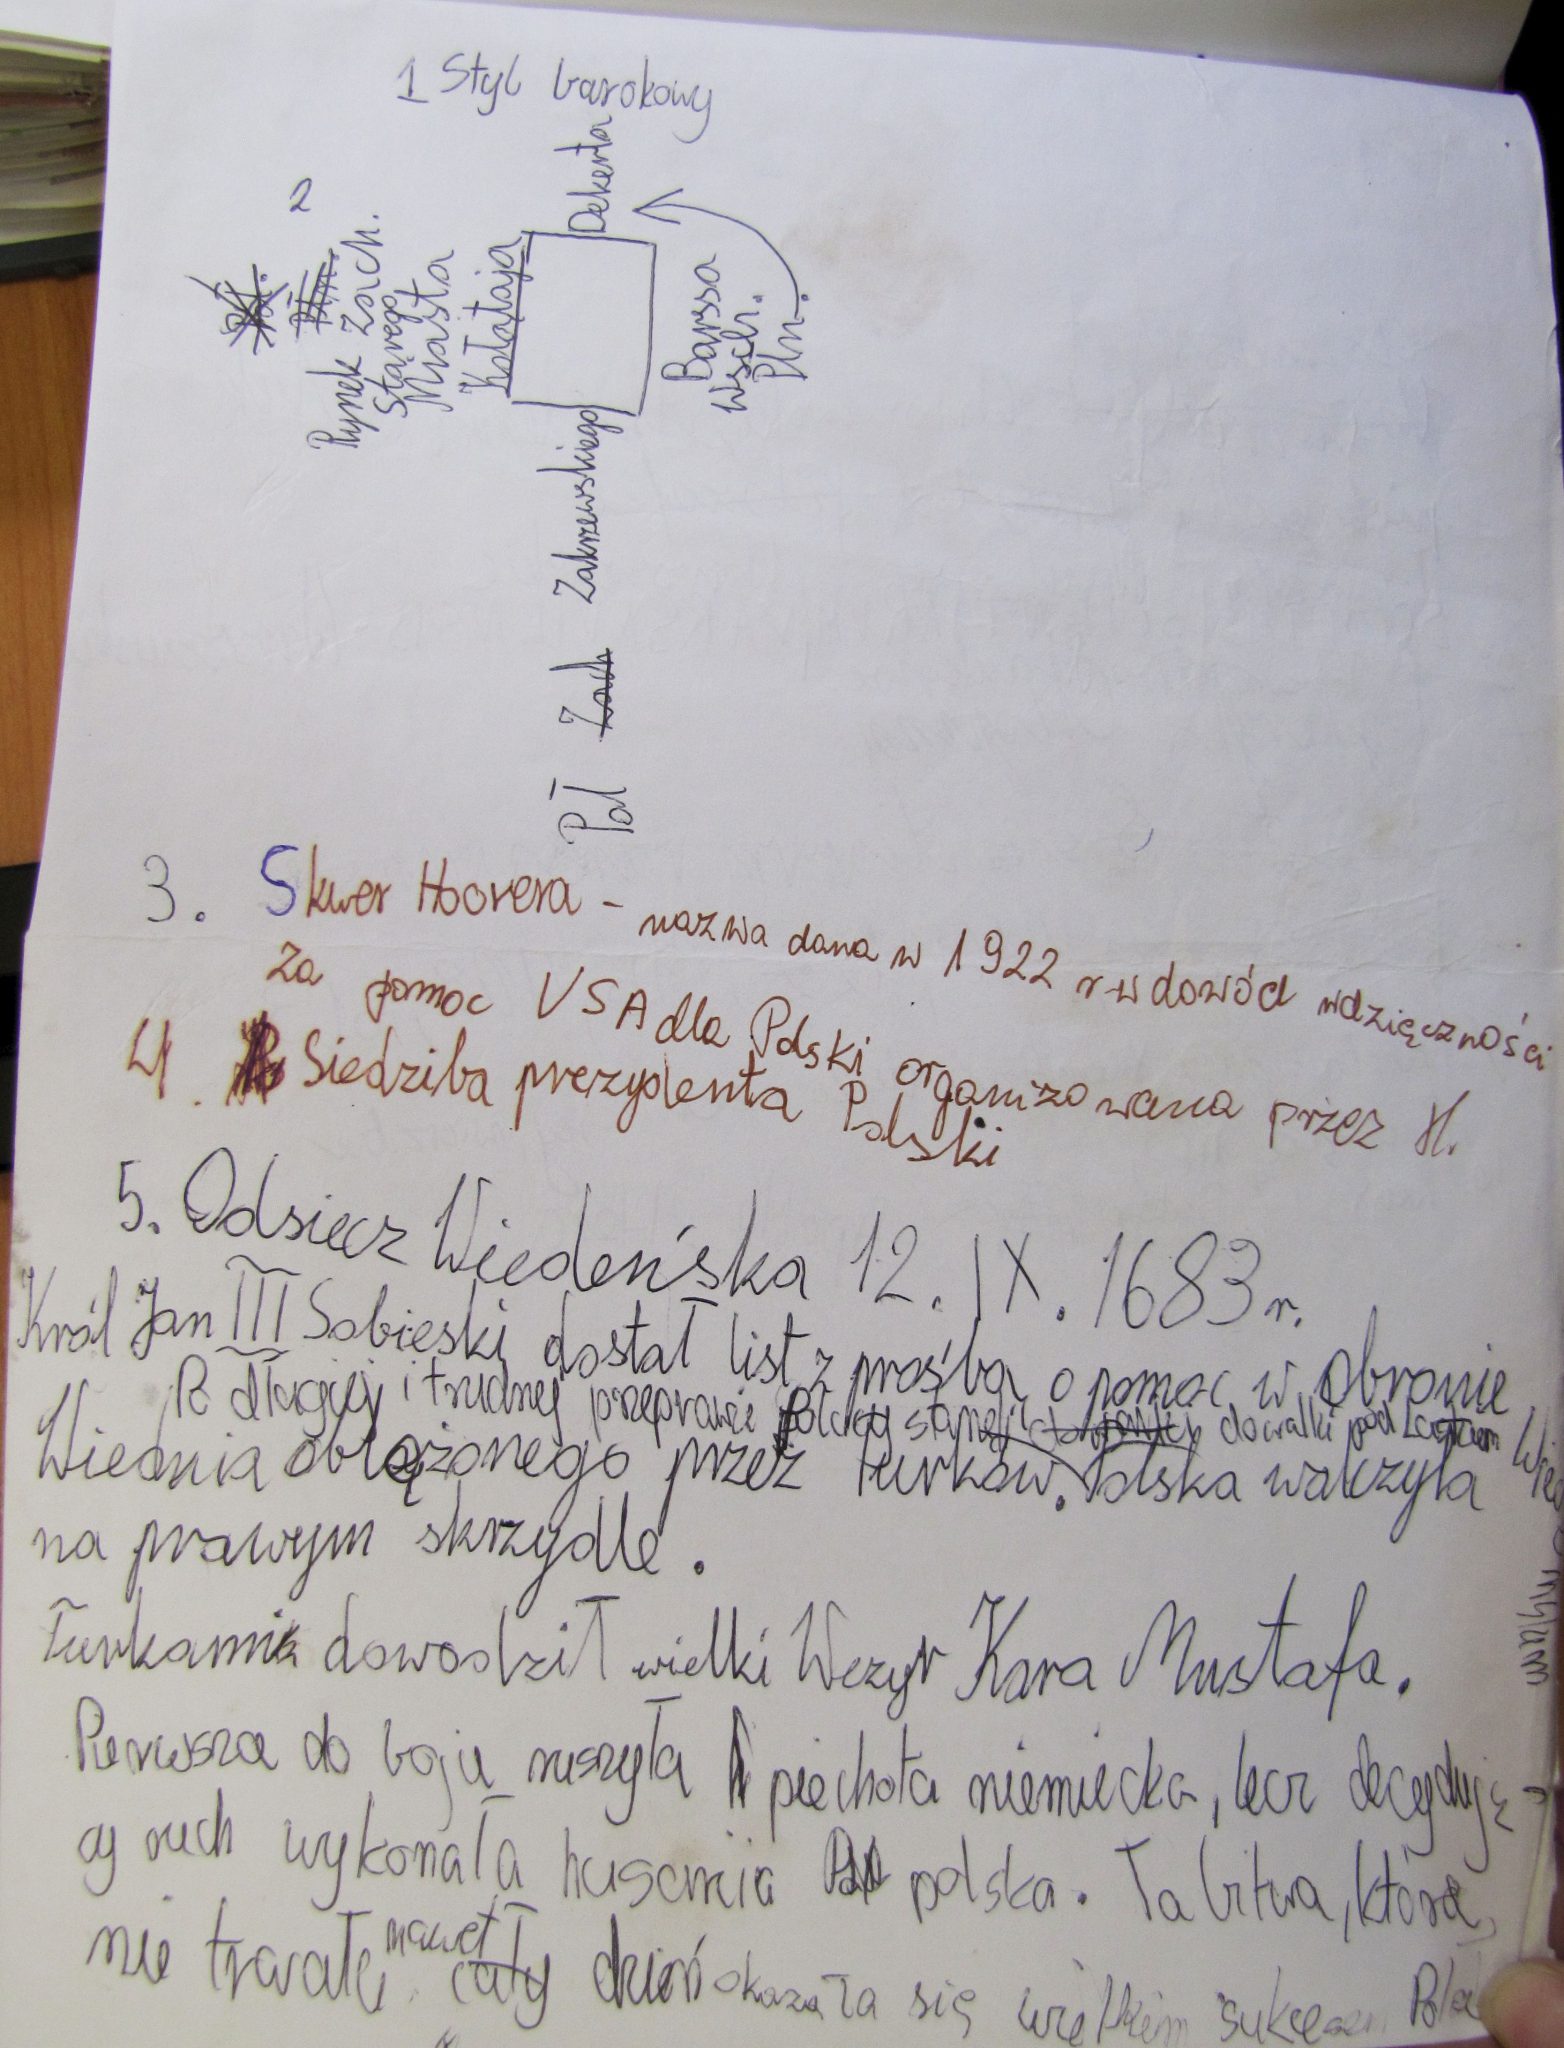 1 Styl barokowy
2
Rynek zach.
Starego
Miasta
Kołłątaja
Dekerta
Barssa
Wsch.
Płn.
Zakrzewskiego
Poł Zach
3. Skwer Hoovera - nazwa dana w 1922 r w dowód wdzięczności
za pomoc USA dla Polski organizowana przez H.
4. Siedziba prezydenta Polski
5. Odsiecz Wiedeńska 12. IX. 1683 r.
Król Jan III Sobieski dostał list z prośbą o pomoc w obronie
Po długiej i trudnej przeprawie Polacy stanęli do walki pod
Wiednia oblążonego przez Turków. Polska walczyła
na prawym skrzydle.
Turkami dowodził wielki Wezyr Kara Mustafa.
Pierwsza do boju ruszyła piechota niemiecka, lecz decydują-
cy ruch wykonała husaria polska. Ta bitwa, która
nie trwała nawet cały dzień okazała się wielkim sukcesem